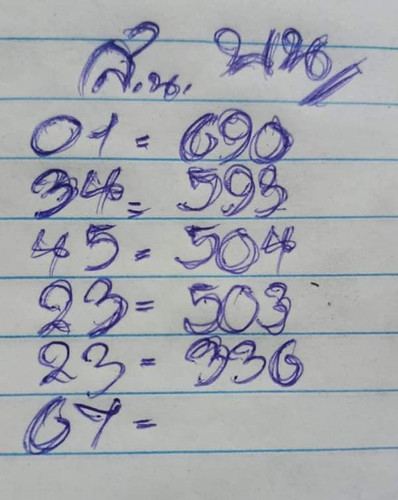 ส.น. บน
01 = 690
34 = 593
45 = 504
23 = 503
23 = 336
67 =